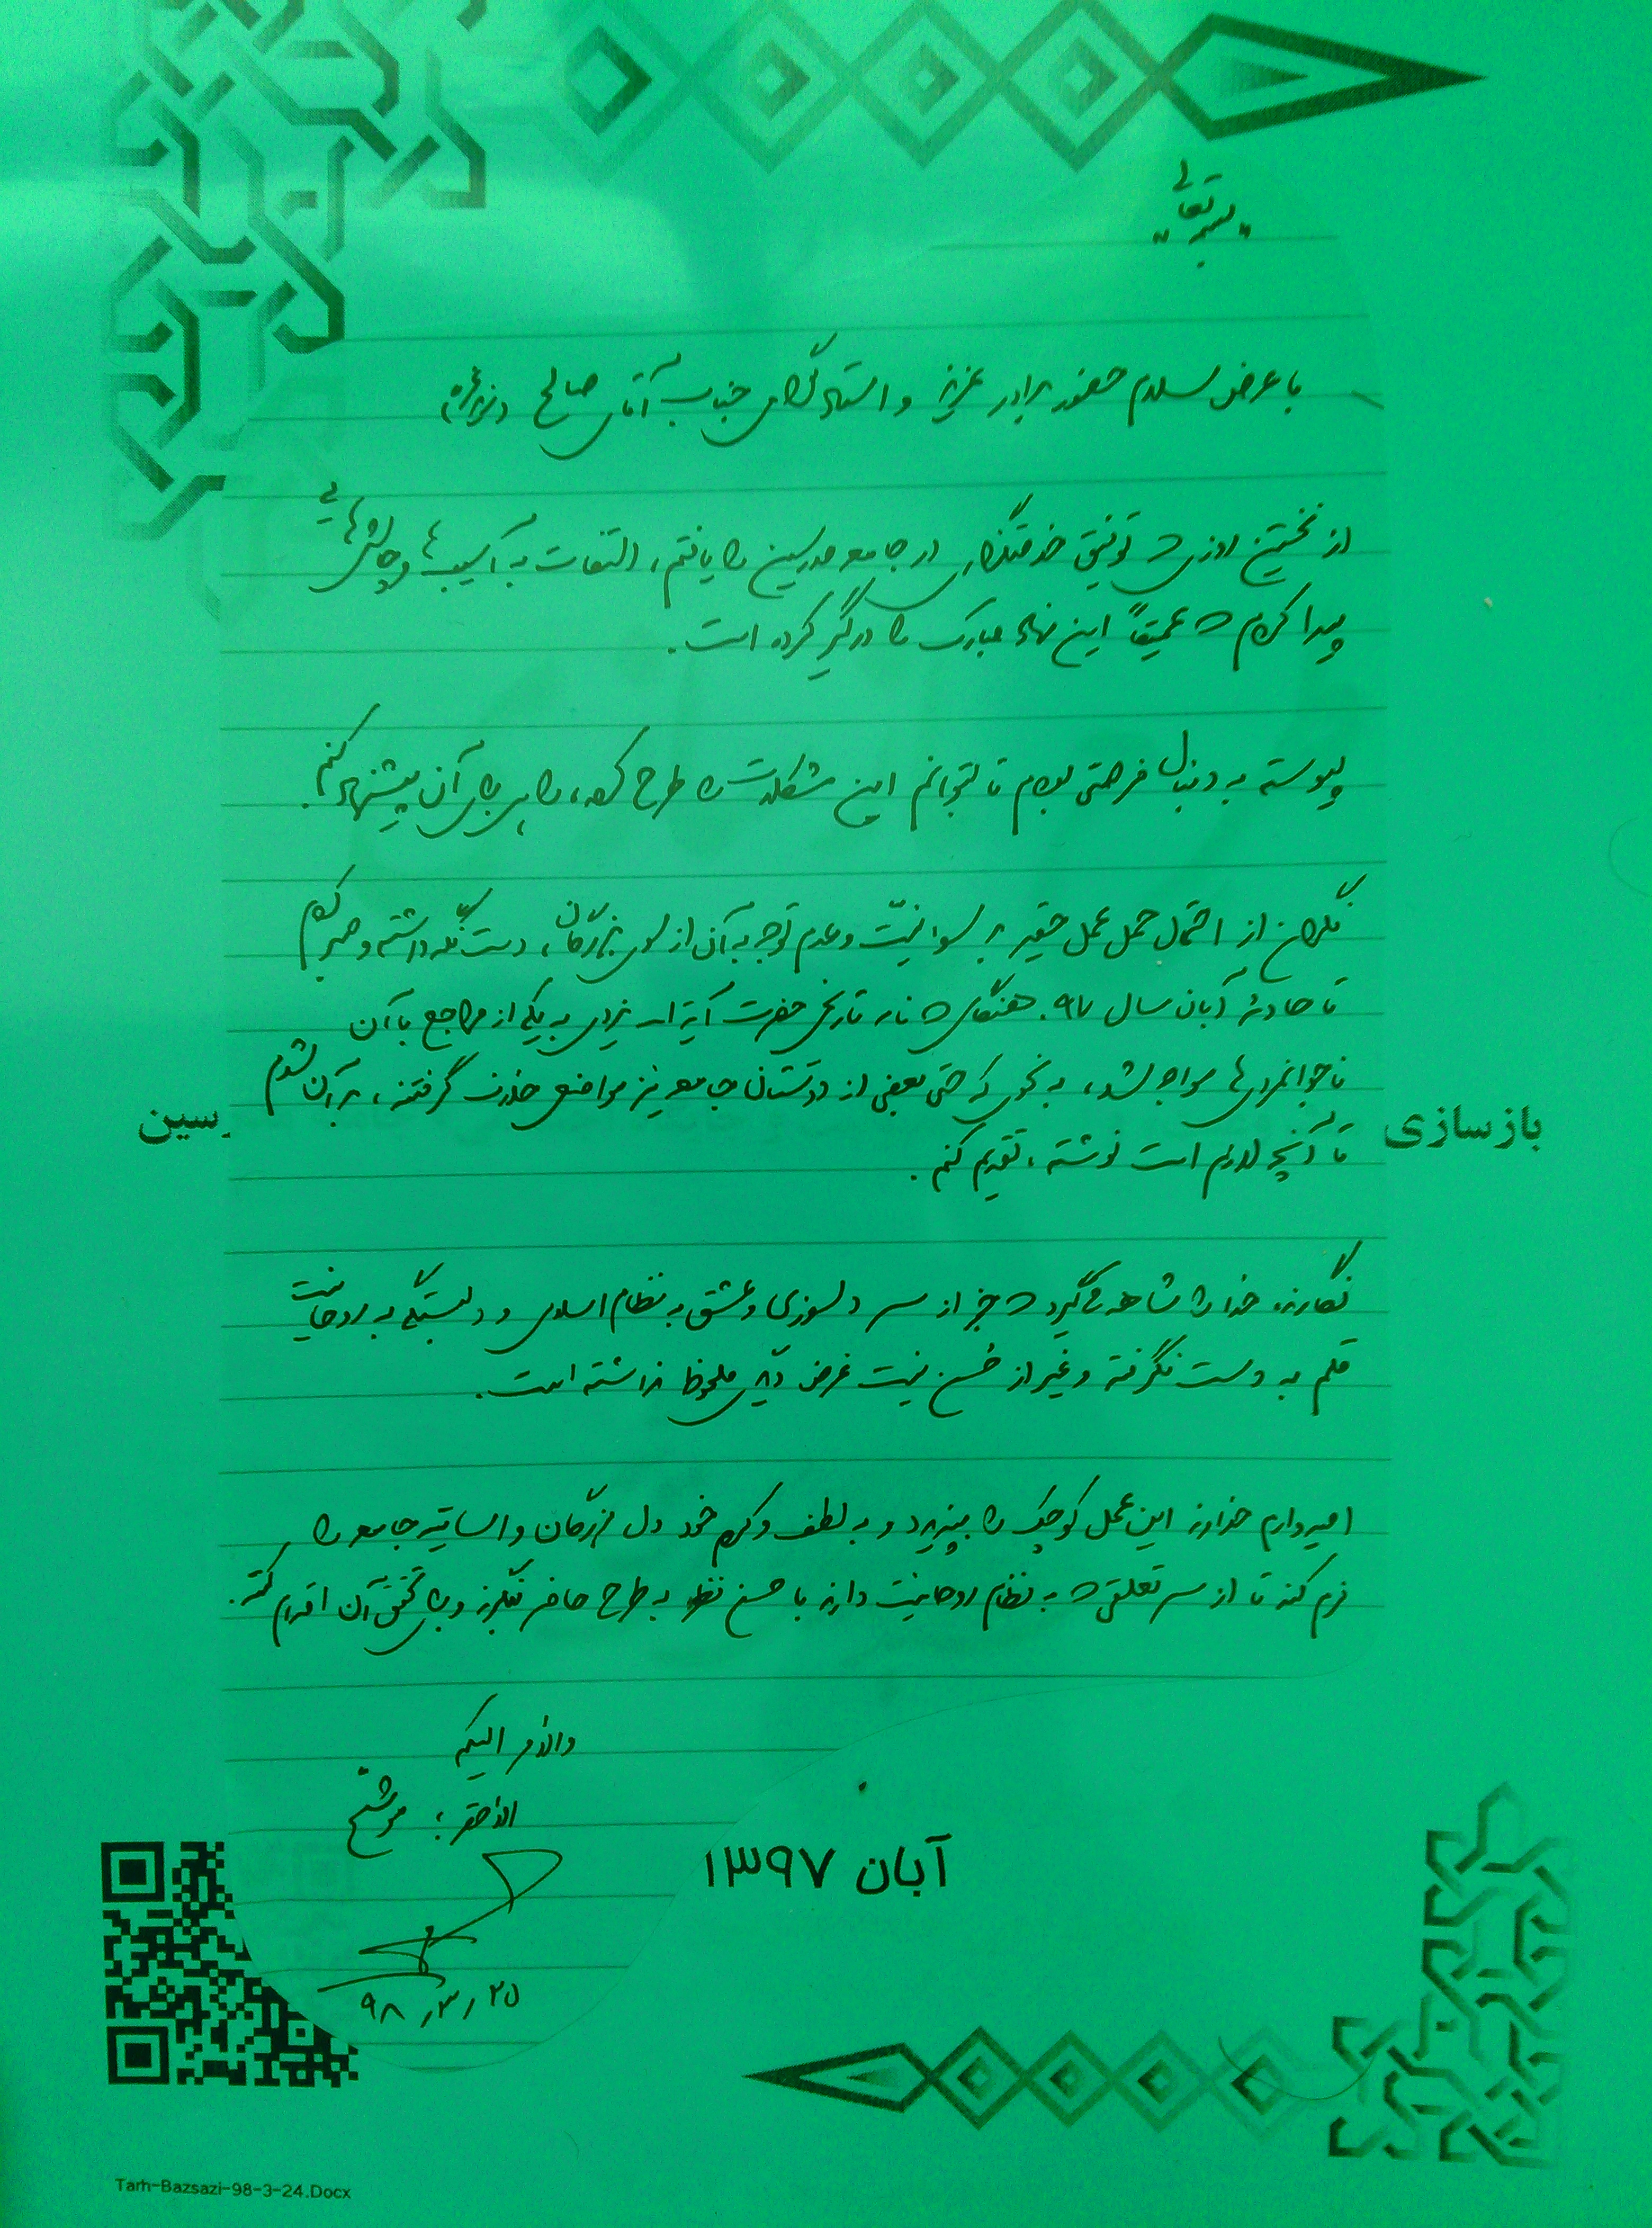 بسمه تعالی
با عرض سلام حضور برادر عزیز و استاد گرامی جناب آقای صالح
از نخستین روزی که توفیق خدمتگزاری در جامعه مدرسین را یافتم، التفات به آسیب‌ها و چالش‌هایی
پیدا کردم که عمیقاً این نهاد مبارک را درگیر کرده است.
پیوسته به دنبال فرصتی بودم تا بتوانم این مشکلات را طرح کرده، راهی برای آن پیشنهاد کنم.
نگران از احتمال حمل عمل حقیر بر سوء نیّت و عدم توجه به آن از سوی بزرگان، دست نگه داشته و صبر کردم
تا حادثهٔ آبان سال ۹۷. هنگامی که نامه تاریخی حضرت آیة‌ا... یزدی به یکی از مراجع با آن
ناجوانمردی‌ها مواجه شد، به نحوی که حتی بعضی از دوستان جامعه نیز مواضعی خلاف گرفتند، بر آن شدم
تا آنچه لازم است نوشته، تقدیم کنم.
بازسازی سین
نگارنده خدا را شاهد می‌گیرد که جز از سر دلسوزی و عشق به نظام اسلامی و دلبستگی به روحانیت
قلم به دست نگرفته و غیر از حُسن نیت غرض دیگری ملحوظ نداشته است.
امیدوارم خداوند این عمل کوچک را بپذیرد و به لطف و کرم خود دل بزرگان و اساتید جامعه را
نرم کند تا از سر تعلقی که به نظام روحانیت دارند با حسن نظر به طرح حاضر بنگرند و برای تحقق آن اقدام کنند.
والأمر الیکم
الأحقر؛ موشّح
آبان ۱۳۹۷
۲۵ / ۳ / ۹۸
Tarh-Bazsazi-98-3-24.Docx